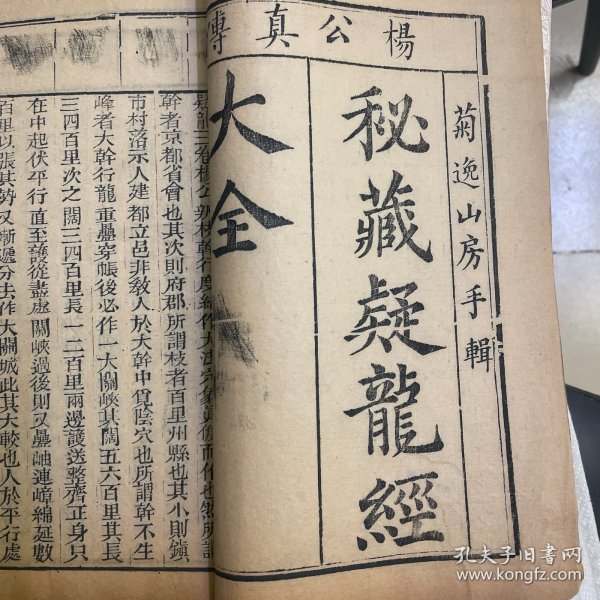 楊公真傳
菊逸山房手輯
秘藏疑龍經
大全
幹者京都省會也其次則府郡所謂枝者百里州縣也其小則鎮
市村落示人建都立邑非教人於大幹中覓陰穴也所謂幹不生
峰者大幹行龍重疊穿帳後必作一大關峽其闊五六百里其長
三四百里次之闊三四百里長一二百里兩邊護送整齊正身只
在中起伏平行直至護從盡處關峽過後則又疊岫連嶂綿延數
百里以張其勢又漸遞分去作大關城此其大較也人於平行處
孔夫子旧书网
www.kongfz.com